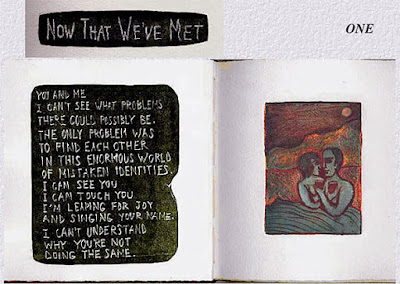 NOW THAT WE'VE MET
ONE
YOU AND ME
I CAN'T SEE WHAT PROBLEMS
THERE COULD POSSIBLY BE.
THE ONLY PROBLEM WAS
TO FIND EACH OTHER
IN THIS ENORMOUS WORLD
OF MISTAKEN IDENTITIES.
I CAN SEE YOU
I CAN TOUCH YOU
I'M LEAPING FOR JOY
AND SINGING YOUR NAME.
I CAN'T UNDERSTAND
WHY YOU'RE NOT
DOING THE SAME.